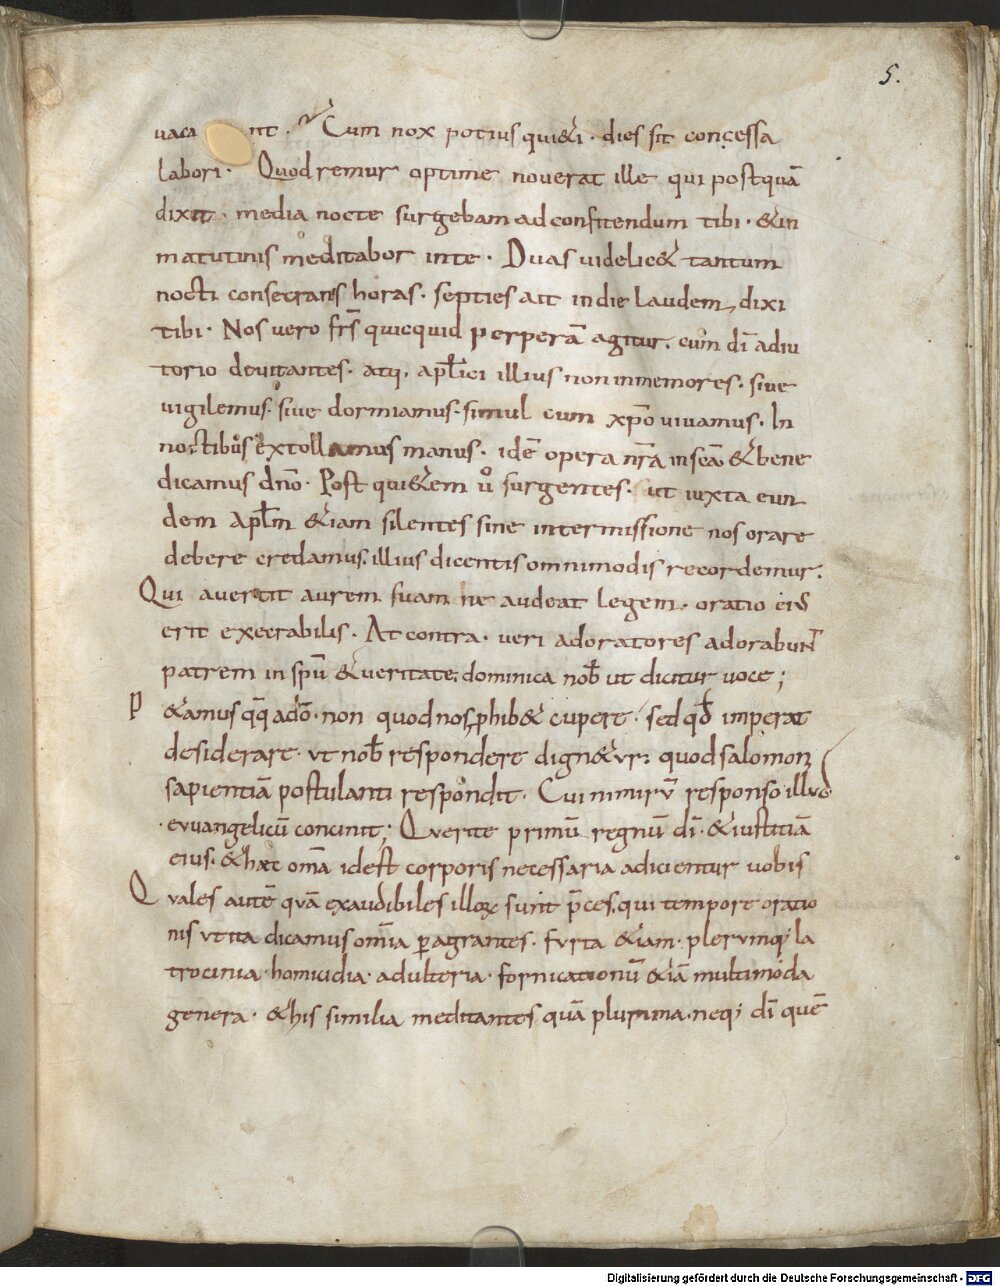 5.
vaca nt. Cum nox potius qui&i· dies sit concessa
labori· Quod remur optime noverat ille qui postquā
dixit· media nocte surgebam ad confitendum tibi· &in
matutinis meditabor inte· Duas videlic& tantum
nocti consecrans horas· septies ait in die laudem dixi
tibi· Nos vero frs̄ quicquid perperā agitur, cum dī adiu
torio devitantes· atq, apl̄ici illius non inmemores· sive
vigilemus· sive dormiamus· simul cum xp̄o vivamus· In
noctibus extollamus manus· idē opera nr̄a in scā &bene
dicamus dn̄o· Post qui&em ů surgentes· ut iuxta eun
dem Apl̄m &iam silentes sine intermissione nos orare
debere credamus, illius dicentis omnimodis recordemur,
Qui avertit aurem suam ne audeat legem· oratio eius
erit execrabilis· At contra· veri adoratores adorabunt
patrem in spū &veritate, dominica nob̄ ut dicitur voce;
P &amus q̄q̄ a dō· non quod nos phib& cupere· sed qd̄ imperat
desiderare· ut nob̄ respondere dign&ur· quod salomon
sapientiā postulanti respondit· Cui nimirū responso illud
evvangelicū concinit; Querite primū regnū dī· &iustitiā
eius· &hæc om̄a id est corporis necessaria adicientur vobis
Quales autē quā exaudibiles illoꝝ sunt p̄ces, qui tempore oratio
nis ut ita dicamus omīa ꝑagrantes· furta &iam· plerumq; la
trocinia· homicidia· adulteria· fornicationū &iā multimoda
genera· &his similia meditantes quā plurima· neq; dī quē
Digitalisierung gefördert durch die Deutsche Forschungsgemeinschaft - DFG